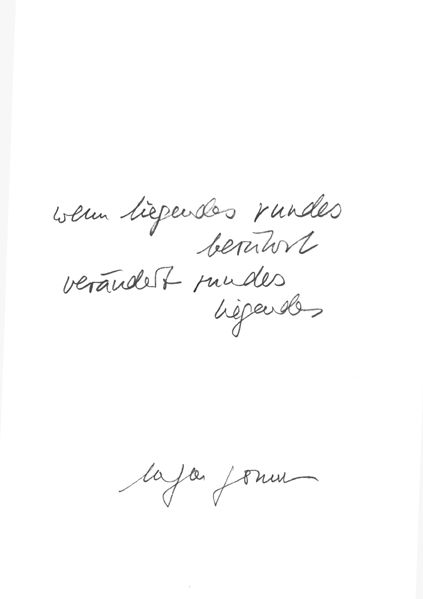 wenn liegendes rundes
berührt
verändert rundes
liegendes